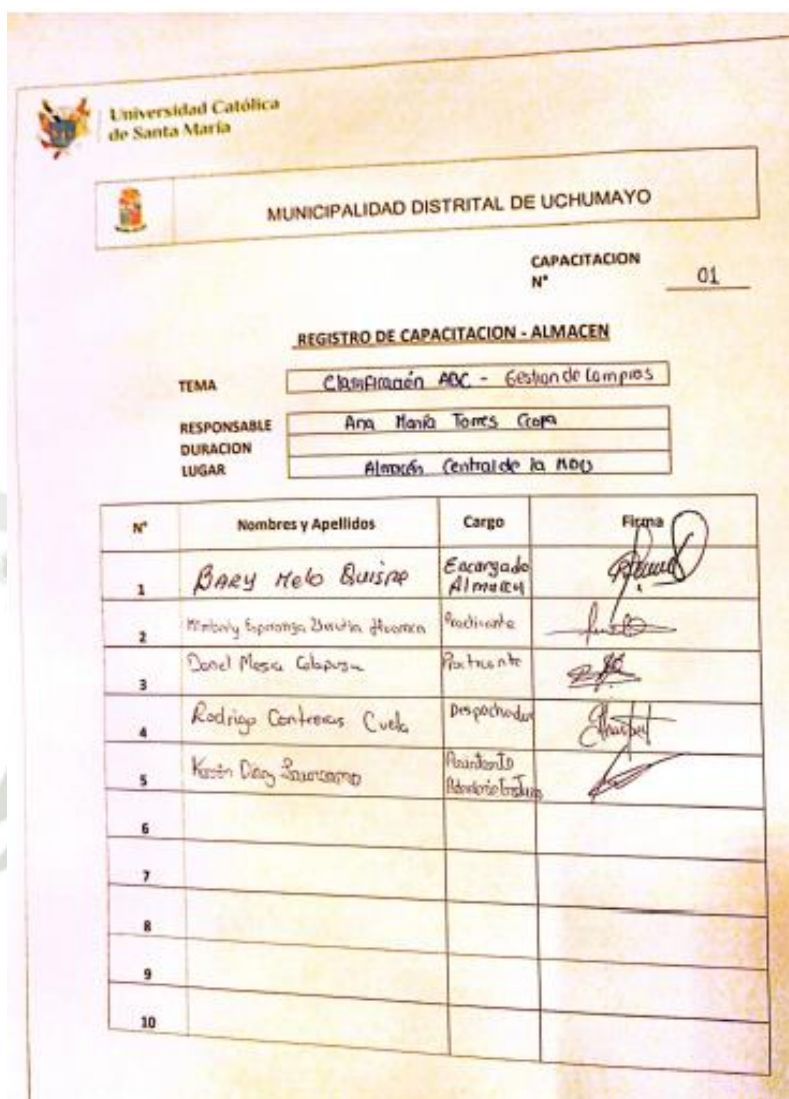 Universidad Católica
de Santa María
MUNICIPALIDAD DISTRITAL DE UCHUMAYO
CAPACITACION
N° 01
REGISTRO DE CAPACITACION - ALMACEN
TEMA Clasificación ABC - Gestion de Compras
RESPONSABLE Ana María Torres Ccopa
DURACION
LUGAR Almacén Central de la MDU
N° Nombres y Apellidos Cargo Firma
1 BARY Melo Quispe Encargado Almacen
2 Esperanza Practicante
3 Practicante
4 Rodrigo Contreras Despachador
5 Díaz Asistente Administrativo
6
7
8
9
10